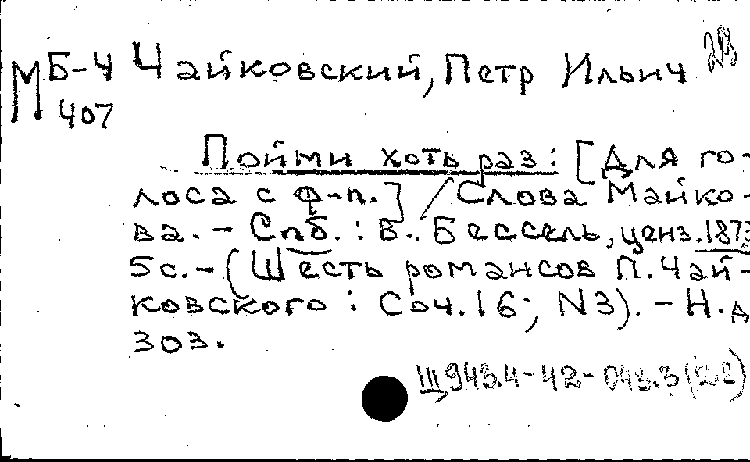 МБ-4 Чайковский, Петр Ильич
407
Пойми хоть раз: [Для го-
лоса с ф-п.] / Слова Майко-
ва. - Спб. : В. Бессель, ценз. 1873
5с. - (Шесть романсов П. Чай-
ковского : Соч. 16; N3). - Н.д.
303.
Щ943.4-42-